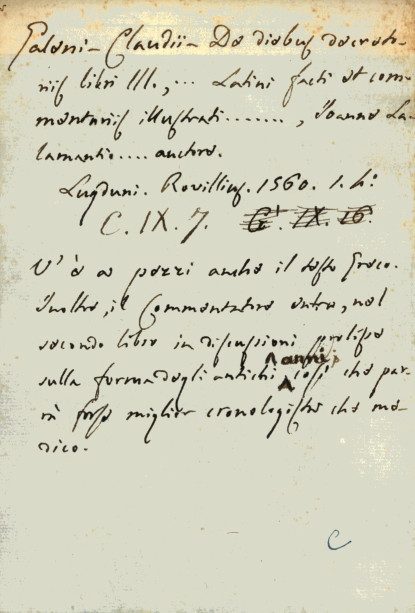 Galeni - Claudii - De diebus decreto-
riis libri III., ... Latini facti et com-
mentariis illustrati ......., Joanne La-
lamantio .... auctore.
Lugduni. Rovillius. 1560. 1. 4.°
C. IX. 7. G. IX. 16.
V'è a pezzi anche il testo Greco.
Inoltre, il Commentatore entra, nel
secondo libro in discussioni prolisse
sulla forma degli antichi anni, così che par-
rà forse miglior cronologista che me-
dico.
C